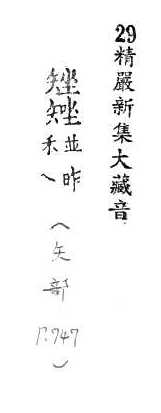 29精嚴新集大藏音
矬
並昨
禾乀
(矢部 P.747)